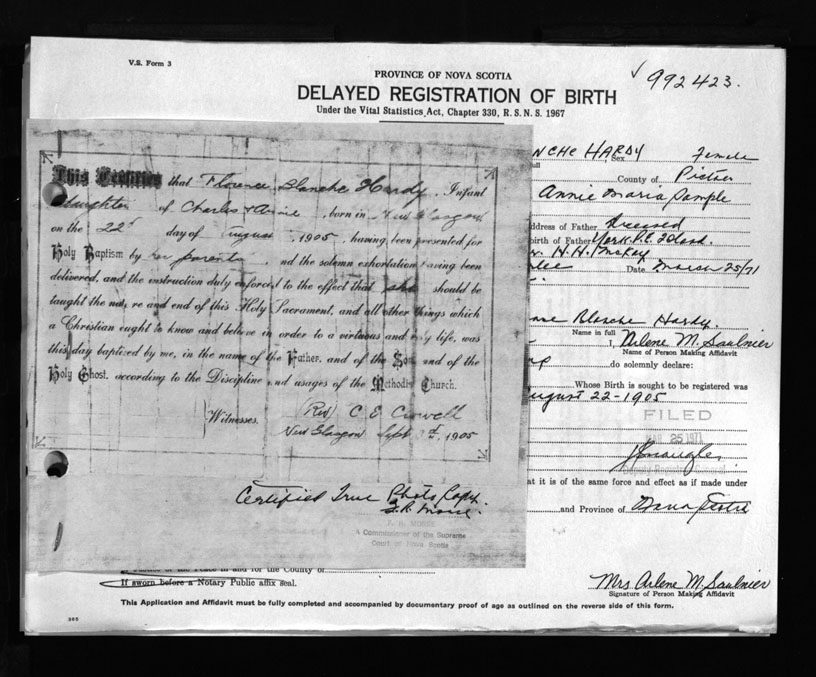 V.S. Form 3
PROVINCE OF NOVA SCOTIA
DELAYED REGISTRATION OF BIRTH
Under the Vital Statistics Act, Chapter 330, R. S. N. S. 1967
✓ 992423.
This Certifies that Florence Blanche Hardy, Infant
Daughter of Charles & Annie, born in New Glasgow
on the 22d day of August, 1905, having been presented for
Holy Baptism by her parents, and the solemn exhortation having been
delivered, and the instruction duly enforced to the effect that she should be
taught the nature and end of this Holy Sacrament, and all other things which
a Christian ought to know and believe in order to a virtuous and holy life, was
this day baptized by me, in the name of the Father, and of the Son and of the
Holy Ghost, according to the Discipline and usages of the Methodist Church.
Witnesses.
Rev C E Crowell
New Glasgow Sept 1905
Certified True Photo Copy.
A Commissioner of the Supreme
Court of Nova Scotia
NCHE HARDY Sex Female
County of Pictou
Annie Maria Dample
address of Father Deceased
birth of Father York. P.E. Island.
H. H. McKay
Date March 25/71
Blanche Hardy.
Name in full
I, Arlene M. Saulnier
Name of Person Making Affidavit
do solemnly declare:
Whose Birth is sought to be registered was
August 22-1905
FILED
25 1971
Deputy Registrar General
it is of the same force and effect as if made under
and Province of Nova Scotia
in and for the County of
If sworn before a Notary Public affix seal.
Mrs Arlene M. Saulnier
Signature of Person Making Affidavit
This Application and Affidavit must be fully completed and accompanied by documentary proof of age as outlined on the reverse side of this form.